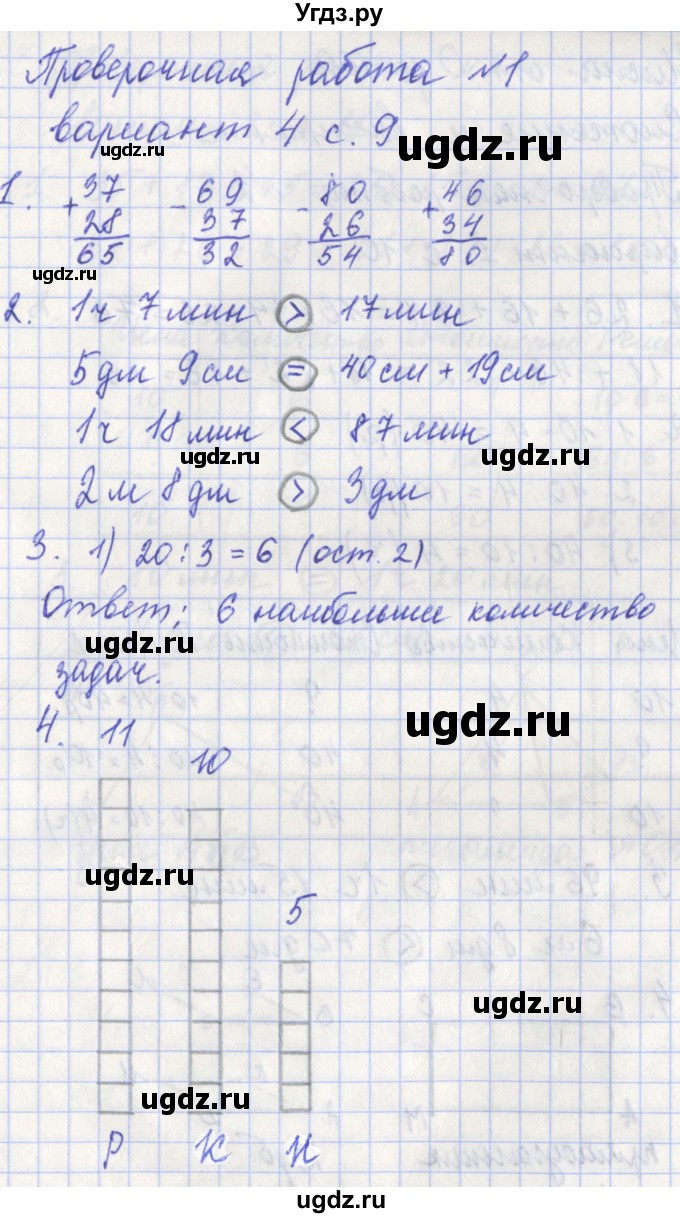 Угдз.ру
Проверочная работа №1
вариант 4 с. 9
ugdz.ru
1. +37 -69 -80 +46
28 37 26 34
65 32 54 80
ugdz.ru
ugdz.ru
2. 1ч 7мин > 17мин
5дм 9см = 40см + 19см
1ч 18мин < 87мин
ugdz.ru
ugdz.ru
2м 8дм > 3дм
3. 1) 20:3=6 (ост. 2)
Ответ: 6 наибольшее количество
ugdz.ru
задач.
ugdz.ru
4. 11
10
ugdz.ru
5
ugdz.ru
ugdz.ru
Р К Н
ugdz.ru